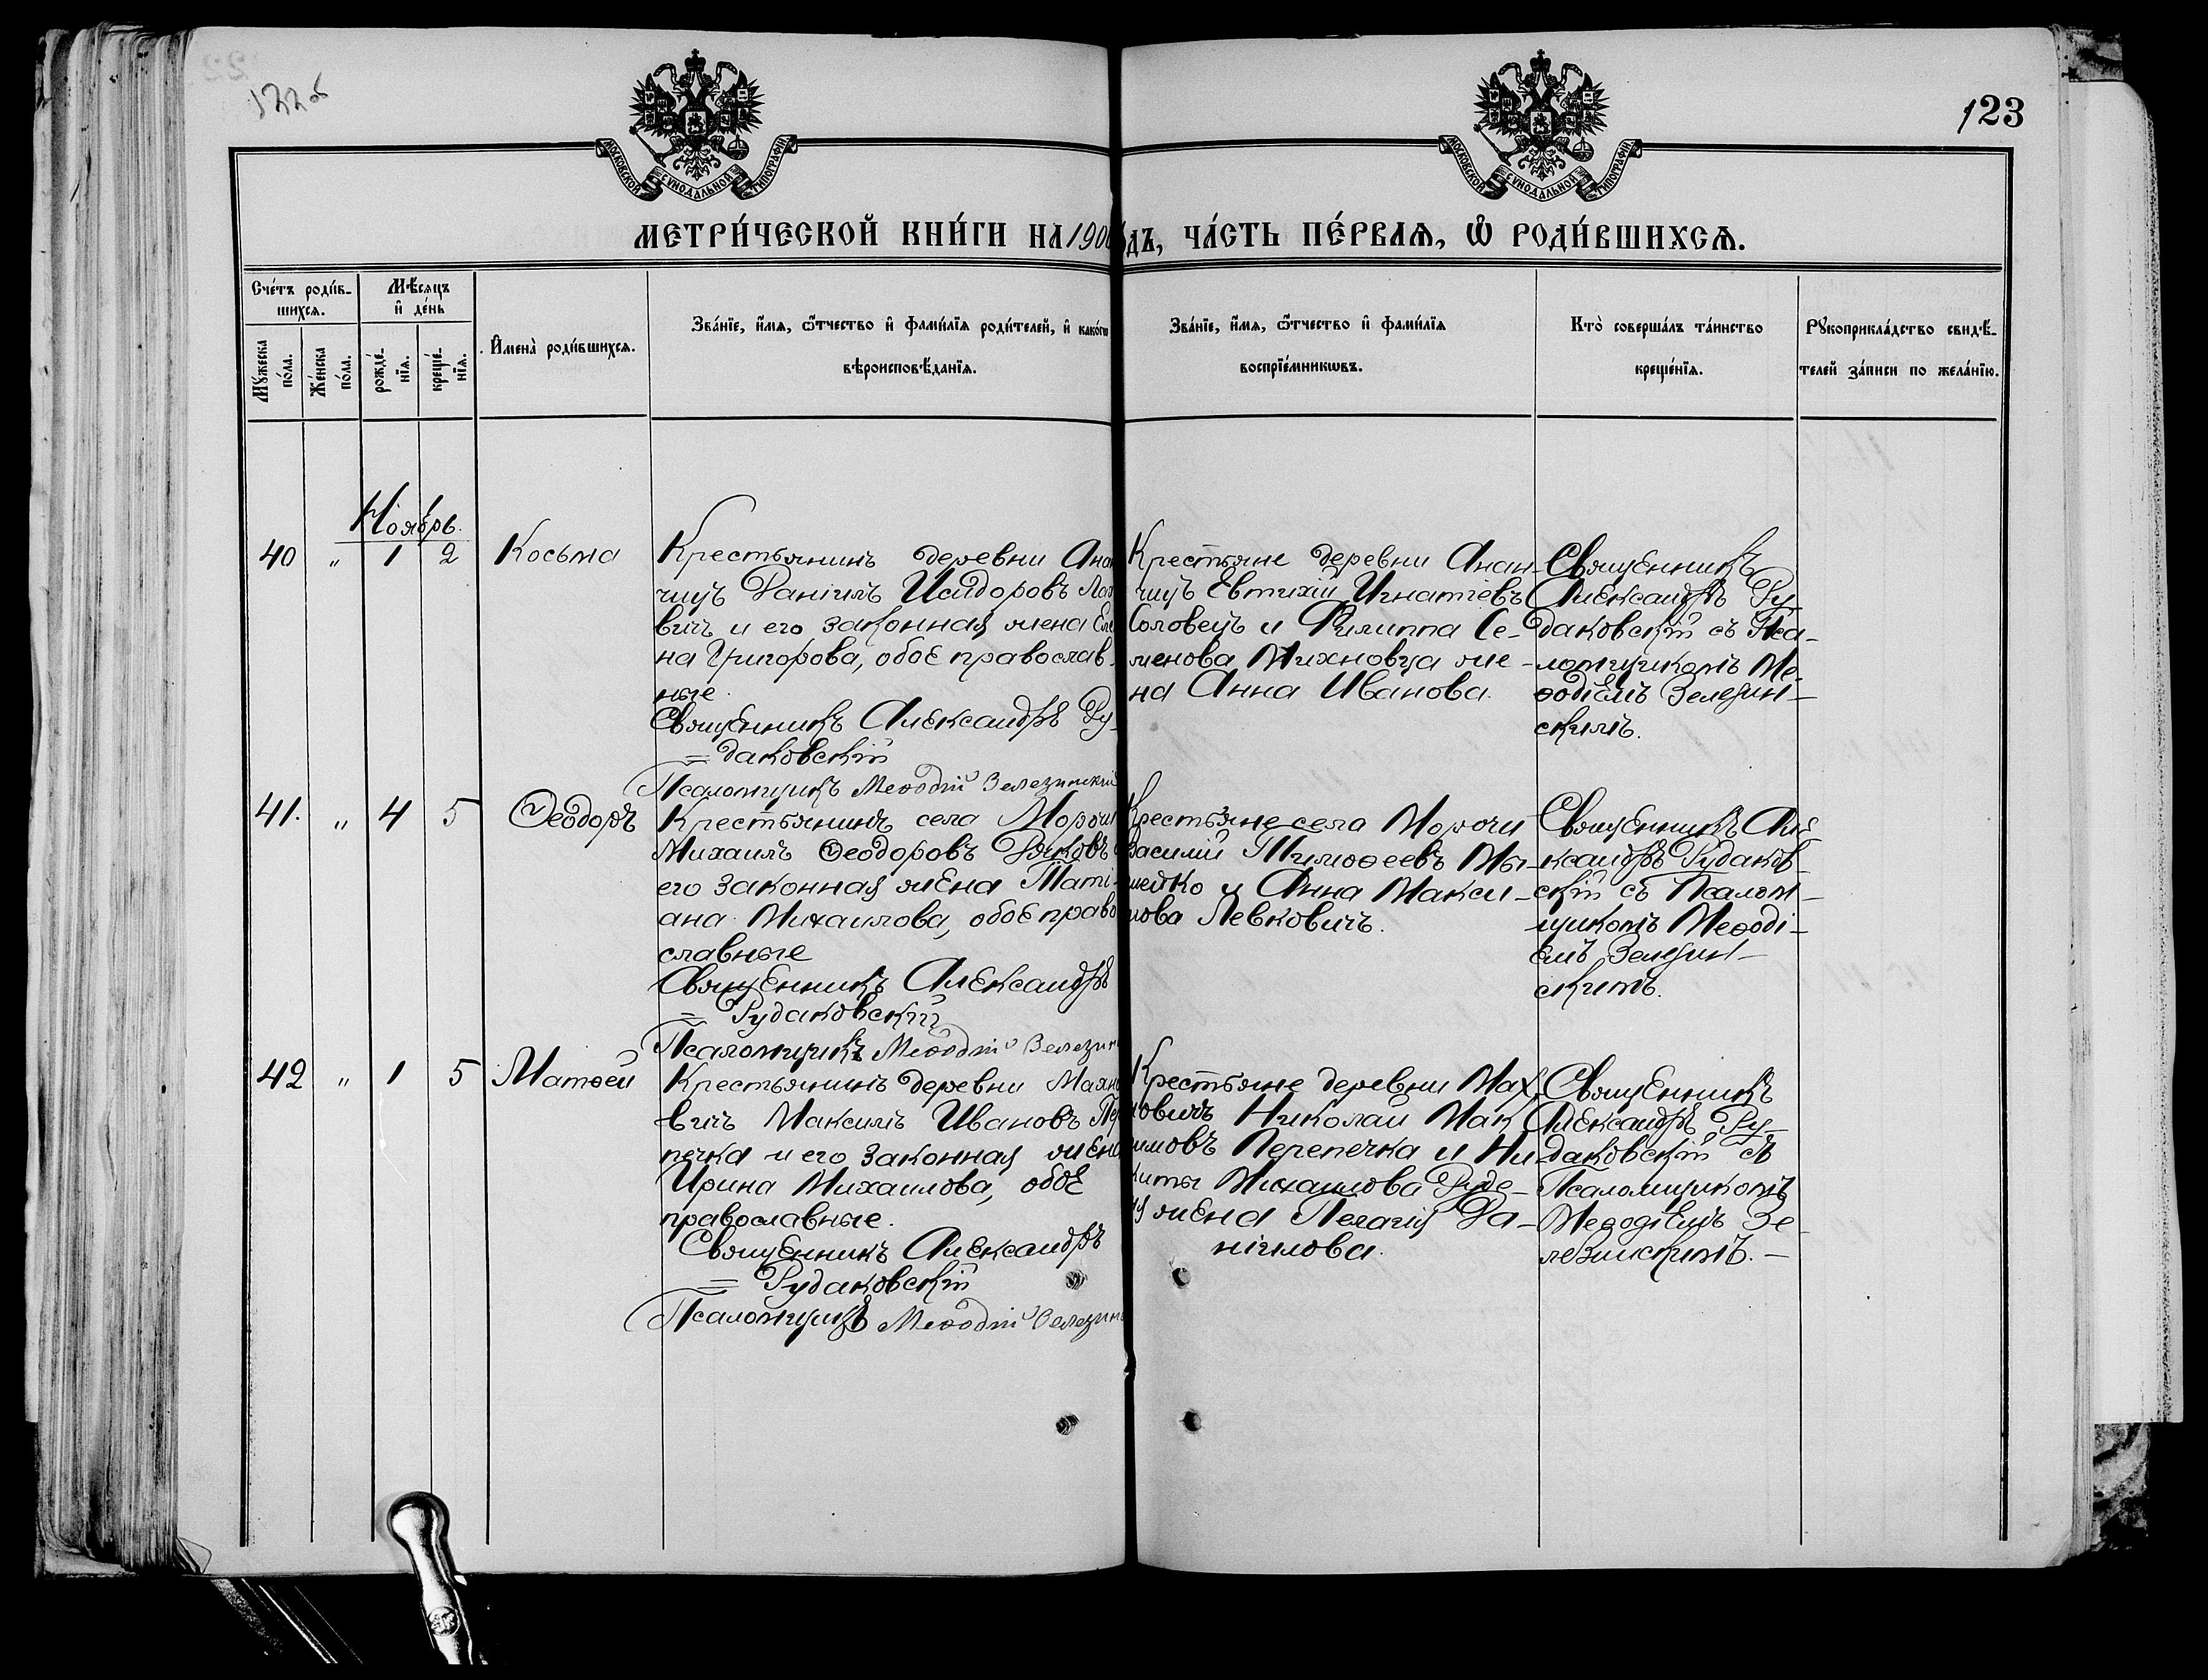 122об
123
МОСКОВСКОЙ СУНОДАЛЬНОЙ ТИПОГРАФІИ
МОСКОВСКОЙ СУНОДАЛЬНОЙ ТИПОГРАФІИ
МЕТРИ́ЧЕСКОЙ КНИ́ГИ НА 190
дъ, ЧА́СТЬ ПЕ́РВАѦ, Ѽ РОДИ́ВШИХСѦ.
Сче́тъ роди́в-
шихсѧ.
Мꙋ́жеска
по́ла.
Же́нска
по́ла.
Мѣ́сѧцъ
и҆ де́нь
рожде́-
нїѧ.
креще́-
нїѧ.
И҆мена̀ роди́вшихсѧ.
Зва́нїе, и҆́мѧ, ѻ҆́тчество и҆ фами́лїѧ роди́телей, и҆ како́гѡ
вѣроисповѣ́данїѧ.
Зва́нїе, и҆́мѧ, ѻ҆́тчество и҆ фами́лїѧ
воспрїе́мникѡвъ.
Кто̀ соверша́лъ та́инство
креще́нїѧ.
Рꙋкоприкла́дство свидѣ́-
телей за́писи по жела́нїю.
Ноябрь.
40 " 1 2 Косьма
Крестьянинъ деревни Анан
чицъ Даніилъ Исидоровъ
вичъ и его законная жена Еле
на Григорова, обое православ-
ные.
Священникъ Александръ Ру-
=даковскій
Псаломщикъ Меѳодій Зелезинскій
Крестьяне деревни Анан-
чицъ Евтихій Игнатіевъ
Соловей и Филиппа Се-
менова Михновца же-
на Анна Иванова.
Священникъ
Александръ Ру-
даковскій съ Пса-
ломщикомъ Ме-
ѳодіемъ Зелезин-
скимъ.
41. " 4 5 Ѳеодоръ
Крестьянинъ села Мороч
Михаилъ Ѳеодоровъ
его законная жена Таті-
ана Михаилова, обое право
славные
Священникъ Александръ
= Рудаковскій
Псаломщикъ Меѳодій Зелезин
Крестьяне села Морочи
Василій Тимоѳеевъ Мы-
шейко и Анна Макси-
мова Левковичъ.
Священникъ Але-
ксандръ Рудаков-
скій съ Псалом-
щикомъ Меѳоді-
емъ Зелезин-
скимъ.
42 " 1 5 Матѳей
Крестьянинъ деревни Махно
вичъ Максимъ Ивановъ Пере
печка и его законная жена
Ирина Михаилова, обое
православные.
Священникъ Александръ
= Рудаковскій
Псаломщикъ Меѳодій Зелезин
Крестьяне деревни Мах-
новичъ Николай Мак
симовъ Перепечка и Ни-
киты Михаилова Руде-
жена Пелагія Да-
ніилова.
Священникъ
Александръ Ру-
даковскій съ
Псаломщикомъ
Меѳодіемъ Зе-
лезинскимъ.-